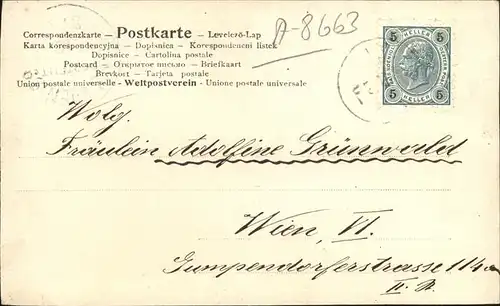 Correspondenzkarte — Postkarte — Levelező-Lap
Karta korespondencyjna — Dopisnica — Korespondenční listek
Dopisnice — Cartolina postale
Postcard — Открытое письмо — Briefkaart
Brevkort — Tarjeta postale
Union postale universelle - Weltpostverein - Unione postale universale
A-8663
5 HELLER 5
5 HELLER 5
Wolg.
Fräulein Adolfine Grünwald
Wien, VI.
Gumpendorferstrasse 114